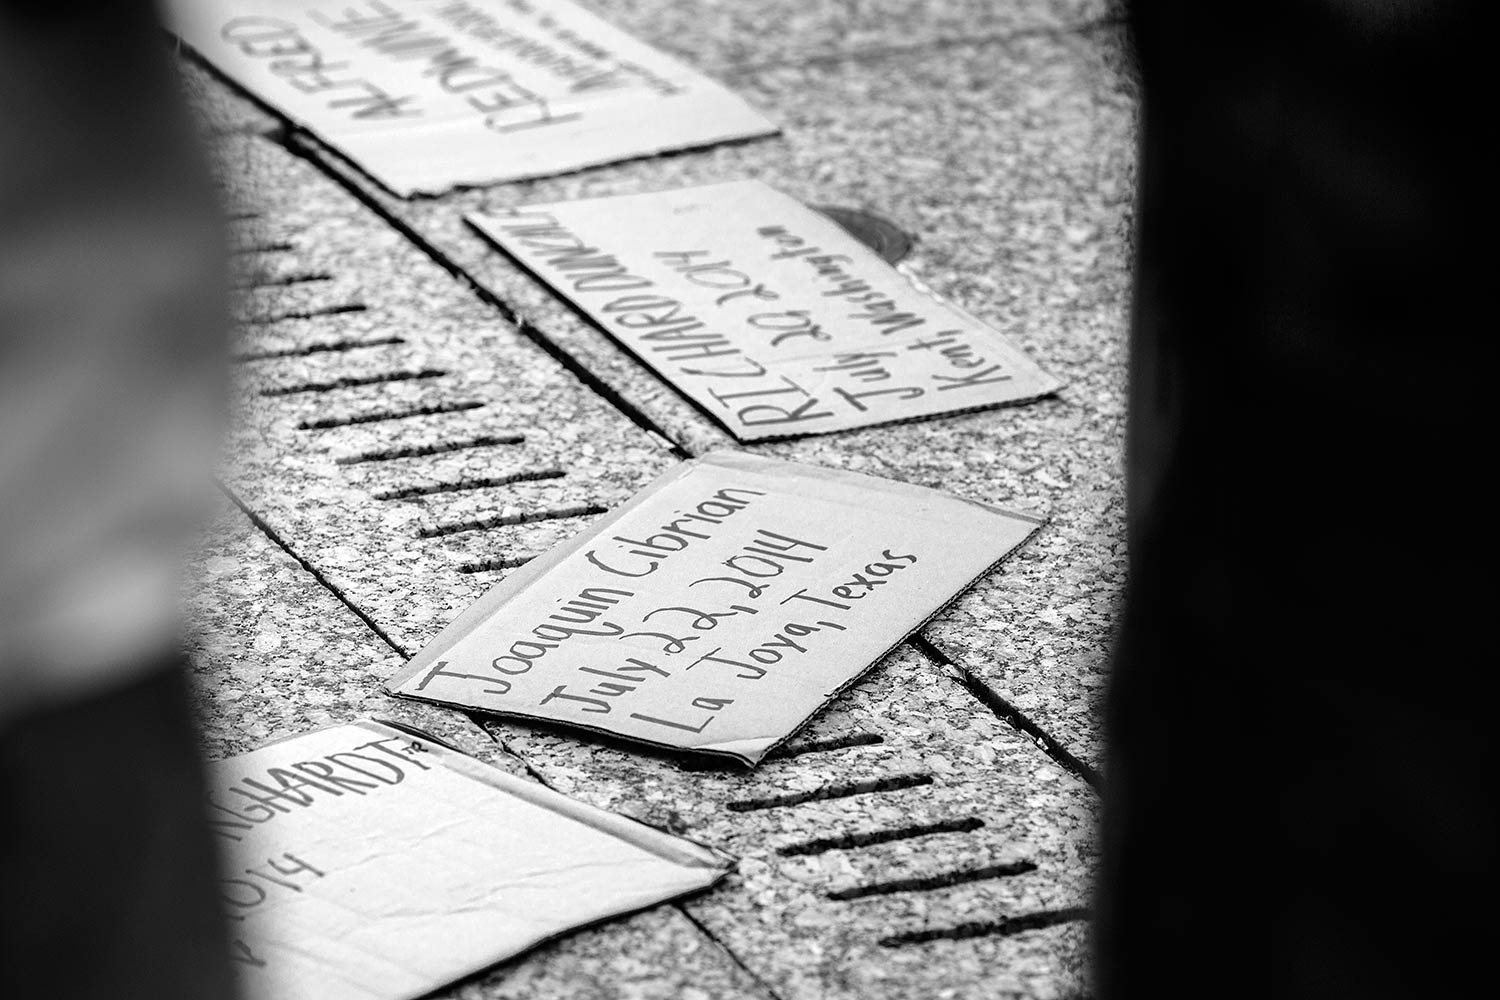 ALFRED
REDWINE
RICHARD
July 20 2014
Kent, Washington
Joaquin Cibrian
July 22, 2014
La Joya, Texas
GHARDT
2014